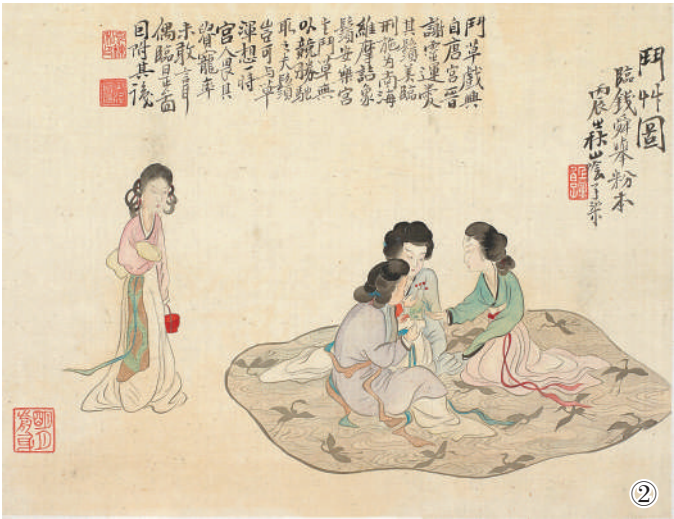 鬥艸圖
臨錢舜舉粉本
丙辰 山陰
鬥草戲典
自唐宮晉
謝靈運愛
其鬚美臨
刑施為南海
維摩詰象
鬚安樂宮
主鬥草典
以競勝馳
取之夫鬚
豈可與草
渾想一時
宮人畏其
寵幸
未敢言耳
偶臨是圖
因附其議
②